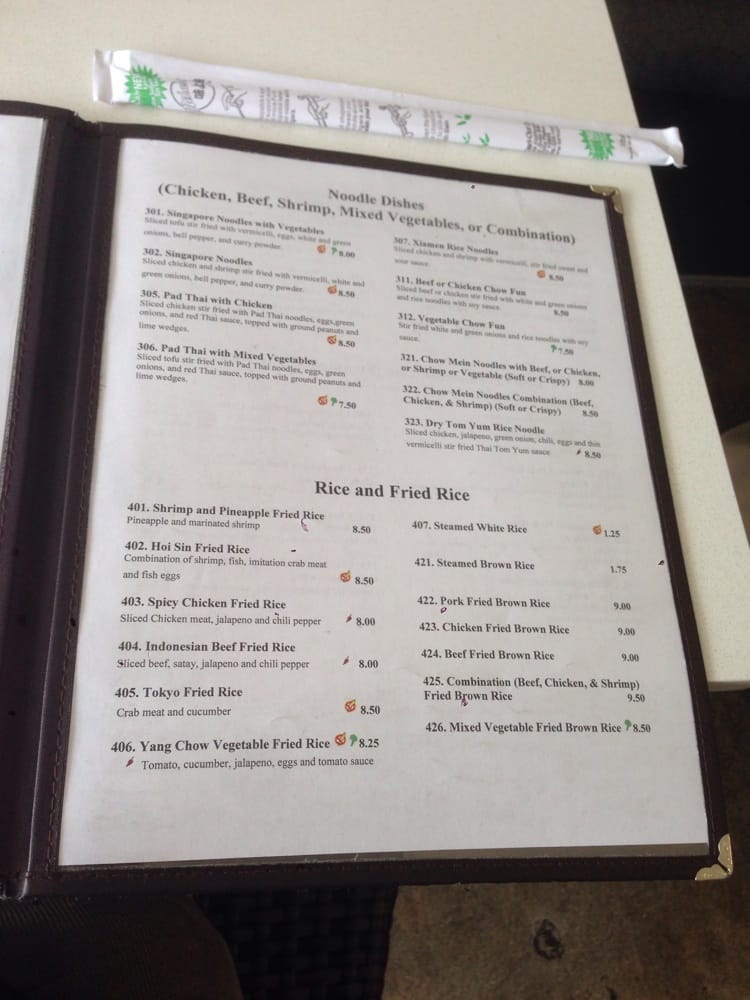 Noodle Dishes
(Chicken, Beef, Shrimp, Mixed Vegetables, or Combination)
301. Singapore Noodles with Vegetables
Sliced tofu stir fried with vermicelli, eggs, white and green
onions, bell pepper, and curry powder.
8.00
302. Singapore Noodles
Sliced chicken and shrimp stir fried with vermicelli, white and
green onions, bell pepper, and curry powder.
8.50
305. Pad Thai with Chicken
Sliced chicken stir fried with Pad Thai noodles, eggs,green
onions, and red Thai sauce, topped with ground peanuts and
lime wedges.
8.50
306. Pad Thai with Mixed Vegetables
Sliced tofu stir fried with Pad Thai noodles, eggs, green
onions, and red Thai sauce, topped with ground peanuts and
lime wedges.
7.50
307. Xiamen Rice Noodles
Sliced chicken and shrimp with vermicelli, stir fried sweet and
sour sauce.
8.50
311. Beef or Chicken Chow Fun
Sliced beef or chicken stir fried with white and green onions
and rice noodles with soy sauce.
8.50
312. Vegetable Chow Fun
Stir fried white and green onions and rice noodles with soy
sauce.
7.50
321. Chow Mein Noodles with Beef, or Chicken,
or Shrimp or Vegetable (Soft or Crispy) 8.00
322. Chow Mein Noodles Combination (Beef,
Chicken, & Shrimp) (Soft or Crispy) 8.50
323. Dry Tom Yum Rice Noodle
Sliced chicken, jalapeno, green onion, chili, eggs and thin
vermicelli stir fried Thai Tom Yum sauce 8.50
Rice and Fried Rice
401. Shrimp and Pineapple Fried Rice
Pineapple and marinated shrimp 8.50
402. Hoi Sin Fried Rice
Combination of shrimp, fish, imitation crab meat
and fish eggs 8.50
403. Spicy Chicken Fried Rice
Sliced Chicken meat, jalapeno and chili pepper 8.00
404. Indonesian Beef Fried Rice
Sliced beef, satay, jalapeno and chili pepper 8.00
405. Tokyo Fried Rice
Crab meat and cucumber 8.50
406. Yang Chow Vegetable Fried Rice 8.25
Tomato, cucumber, jalapeno, eggs and tomato sauce
407. Steamed White Rice 1.25
421. Steamed Brown Rice 1.75
422. Pork Fried Brown Rice 9.00
423. Chicken Fried Brown Rice 9.00
424. Beef Fried Brown Rice 9.00
425. Combination (Beef, Chicken, & Shrimp)
Fried Brown Rice 9.50
426. Mixed Vegetable Fried Brown Rice 8.50